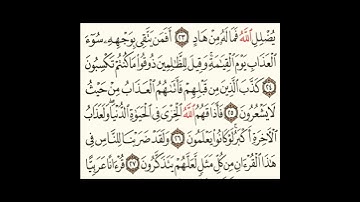 يُضْلِلِ ٱللَّهُ فَمَا لَهُۥ مِنْ هَادٍ ٢٣ أَفَمَن يَتَّقِى بِوَجْهِهِۦ سُوٓءَ
ٱلْعَذَابِ يَوْمَ ٱلْقِيَٰمَةِ وَقِيلَ لِلظَّٰلِمِينَ ذُوقُوا۟ مَا كُنتُمْ تَكْسِبُونَ
٢٤ كَذَّبَ ٱلَّذِينَ مِن قَبْلِهِمْ فَأَتَىٰهُمُ ٱلْعَذَابُ مِنْ حَيْثُ
لَا يَشْعُرُونَ ٢٥ فَأَذَاقَهُمُ ٱللَّهُ ٱلْخِزْىَ فِى ٱلْحَيَوٰةِ ٱلدُّنْيَا وَلَعَذَابُ
ٱلْءَاخِرَةِ أَكْبَرُ لَوْ كَانُوا۟ يَعْلَمُونَ ٢٦ وَلَقَدْ ضَرَبْنَا لِلنَّاسِ فِى
هَٰذَا ٱلْقُرْءَانِ مِن كُلِّ مَثَلٍ لَّعَلَّهُمْ يَتَذَكَّرُونَ ٢٧ قُرْءَانًا عَرَبِيًّا